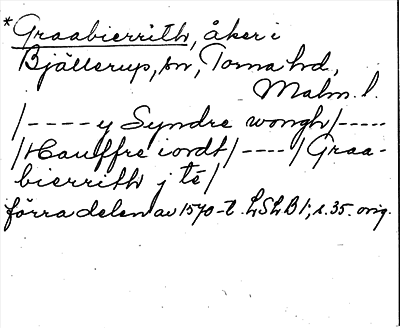 *Graabierrith, åker i
Bjällerup, sn, Torna hd,
Malm. l.
/---- y Syndre wongh/-----
/Hauffre iordt/----/Graa-
bierrith j tē/
förra delen av 1570-t. LSLB 1; s. 35. orig.